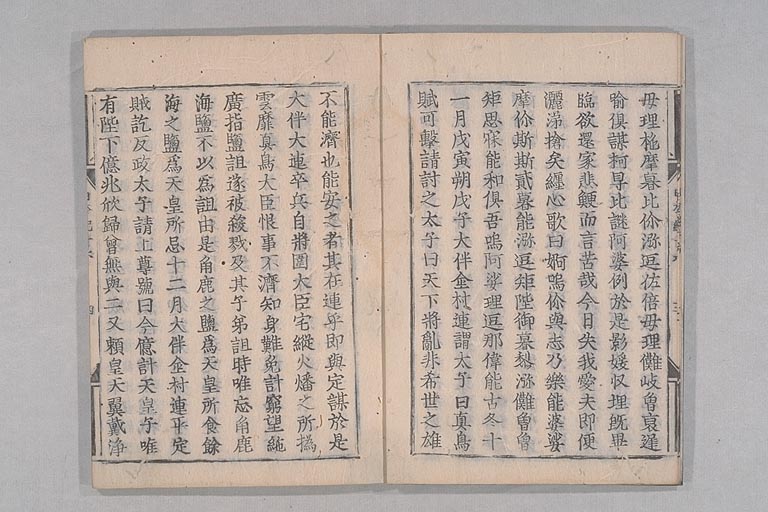 母理柂摩暮比佐瀰逗佐倍母理儺岐曾裒遲
喻俱謀柯舉比謎阿婆例於是影媛収埋既畢
臨欲還家悲鯁而言苦哉今日失我愛夫即便
灑涕愴矣纒心歌曰婀嗚伱與志乃樂能婆娑
摩伱斯斯貳暮能瀰逗矩陛御暮黎瀰儺曾曾
矩思寐能和俱吾嗚阿娑理逗那偉能古冬十
一月戊寅朔戊子大伴金村連謂太子曰真鳥
賊可擊請討之太子曰天下將亂非希世之雄
不能濟也能安之者其在連乎即與定謀於是
大伴大連率兵自將圍大臣宅縱火燔之所撝
雲靡真鳥大臣恨事不濟知身難免計窮望絁
廣指鹽詛遂被殺戮及其子弟詛時唯忘角鹿
海鹽不以為詛由是角鹿之鹽為天皇所食餘
海之鹽為天皇所忌十二月大伴金村連平定
賊訖反政太子請上尊號曰今億計天皇子唯
有陛下億兆欣歸曾無與二又賴皇天翼戴淨